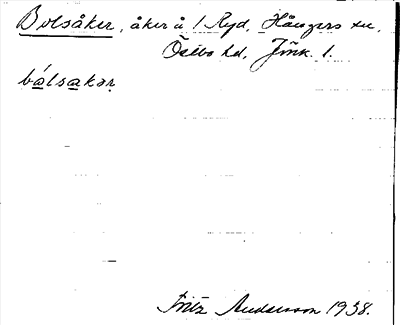 Bolsåker, åker å 1 Ryd, Hångers sn,
Östbo hd, Jönk. l.
bålsakər
Fritz Andersson 1938.